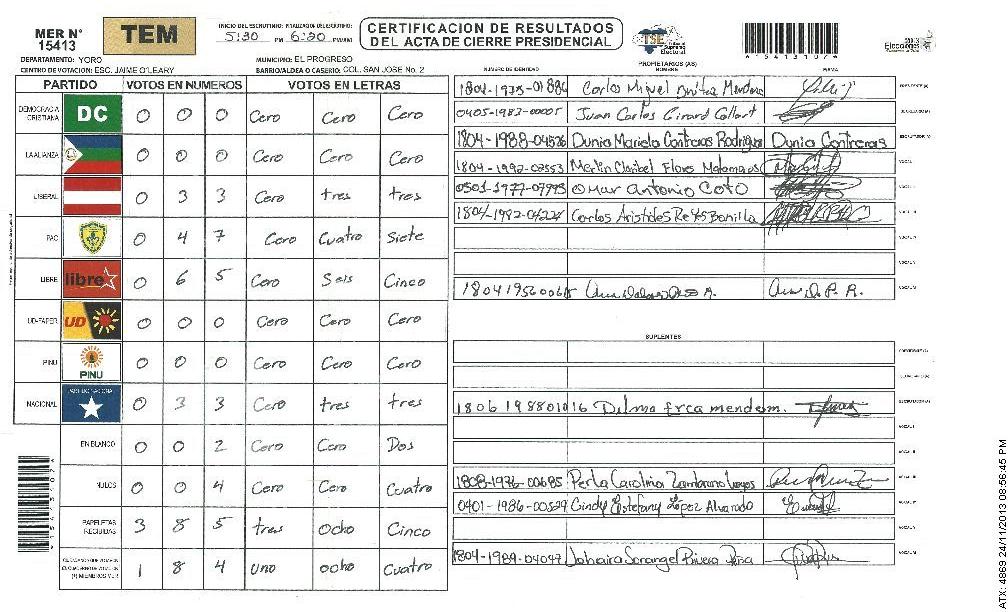 MER N° 15413
TEM
INICIO DEL ESCRUTINIO: FINALIZACION DEL ESCRUTINIO:
5:30 PM 6:20 PM/AM
CERTIFICACION DE RESULTADOS
DEL ACTA DE CIERRE PRESIDENCIAL
TSE
Tribunal Supremo Electoral
15413102
2013
Elecciones
DEPARTAMENTO: YORO
MUNICIPIO: EL PROGRESO
CENTRO DE VOTACION: ESC. JAIME O'LEARY
BARRIO/ALDEA O CASERIO: COL. SAN JOSE No. 2
PARTIDO VOTOS EN NUMEROS VOTOS EN LETRAS
DEMOCRACIA CRISTIANA DC 0 0 0 Cero Cero Cero
LA ALIANZA 0 0 0 Cero Cero Cero
LIBERAL 0 3 3 Cero tres tres
PAC 0 4 7 Cero Cuatro Siete
LIBRE libre 0 6 5 Cero Seis Cinco
UD-FAPER UD 0 0 0 Cero Cero Cero
PINU PINU 0 0 0 Cero Cero Cero
NACIONAL PARTIDO NACIONAL 0 3 3 Cero tres tres
EN BLANCO 0 0 2 Cero Cero Dos
NULOS 0 0 4 Cero Cero Cuatro
PAPELETAS RECIBIDAS 3 8 5 tres Ocho Cinco
1 8 4 Uno ocho Cuatro
PROPIETARIOS (AS)
NUMERO DE IDENTIDAD NOMBRE FIRMA
1804-1975-01886 Carlos Miguel
0405-1983-00005 Juan Carlos Girard Collart
1804-1988-04526 Dunia Mariela Contreras Rodriguez Dunia Contreras
1804-1992-02553 Merlin Claribel Flores Matamoros
0501-1977-07995 Omar Antonio Coto
1804-1992-04224 Carlos Aristides Reyes Bonilla
SUPLENTES
1806 198801016 Dilma
1808-1976-00685 Perla Carolina Zambrano
0401-1986-00529 Cindy Estefany López Alvarado
1804-1989-04047 Johaira Sorangel Rivera
15413102
ATX: 4869 24/11/2013 08:56:45 PM